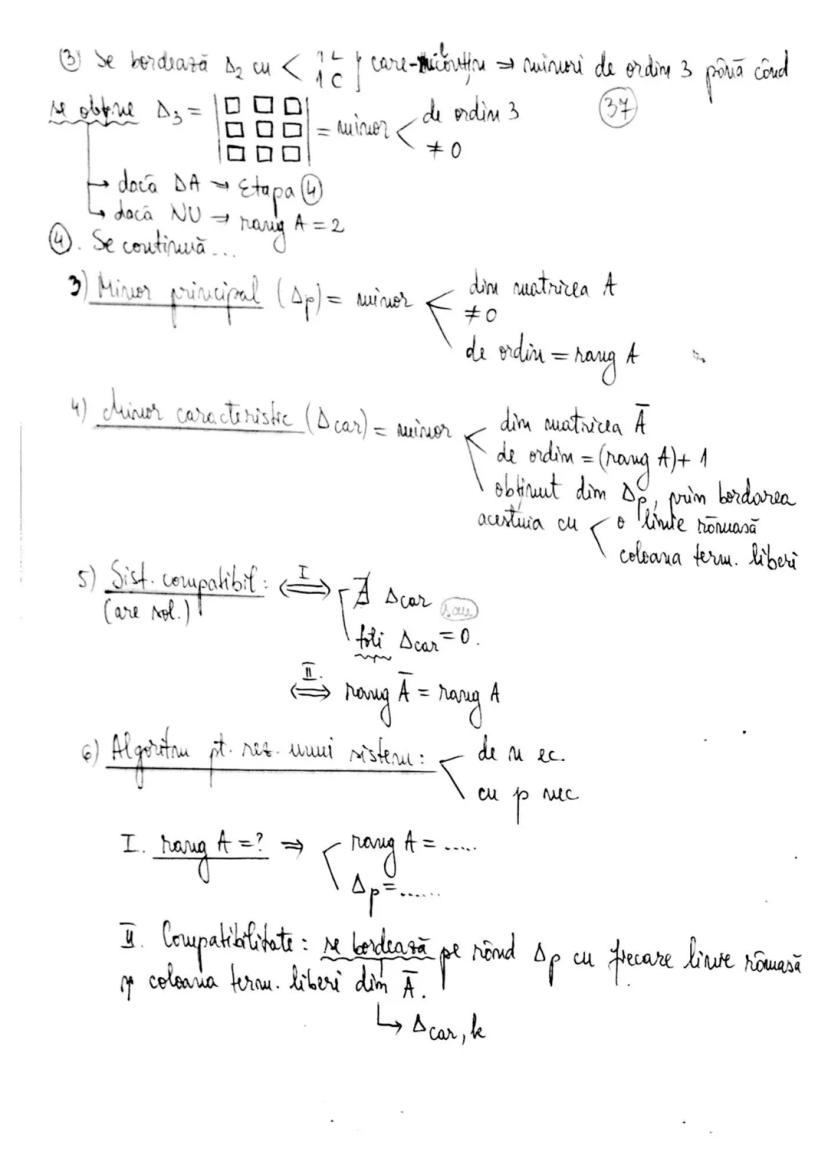 ③ Se bordează Δ₂ cu < 1L 1C } care-l conțin ⇒ minori de ordin 3 până când
se obține Δ₃ = |□ □ □ □ □ □ □ □ □| = minor < de ordin 3 ≠ 0
㊲
→ dacă DA → Etapa ④
→ dacă NU → rang A = 2
④. Se continuă...
3) Minor principal (Δp) = minor < din matricea A
≠ 0
de ordin = rang A
4) Minor caracteristic (Δcar) = minor < din matricea Ā
de ordin = (rang A) + 1
obținut din Δp, prin bordarea
acestuia cu < o linie rămasă
coloana term. liberi
5) Sist. compatibil: ⟺ I ∄ Δcar sau
(are sol.) toți Δcar = 0.
⟺ II. rang Ā = rang A
6) Algoritm pt. rez. unui sistem: < de n ec.
cu p nec
I. rang A = ? ⇒ rang A = .....
Δp = ......
II. Compatibilitate: se bordează pe rând Δp cu fiecare linie rămasă
și coloana term. liberi din Ā.
↳ Δcar, k